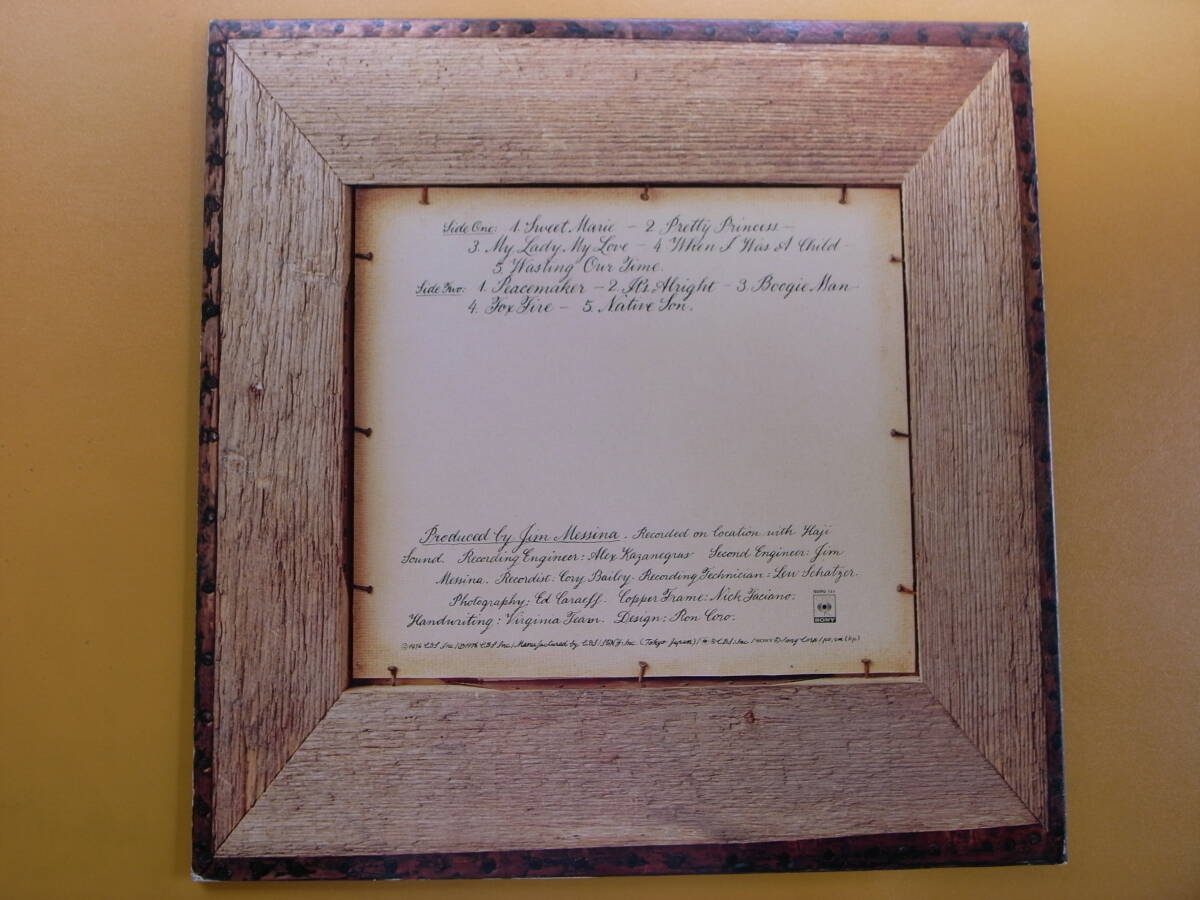 Side One: 1. Sweet Marie – 2. Pretty Princess –
3. My Lady, My Love – 4. When I Was A Child –
5. Wasting Our Time.
Side Two: 1. Peacemaker – 2. It's Alright – 3. Boogie Man –
4. Fox Fire – 5. Native Son.
Produced by Jim Messina. Recorded on location with Haji
Sound. Recording Engineer: Alex Kazanegras Second Engineer: Jim
Messina. Recordist: Cory Bailey. Recording Technician: Lew Schatzer.
Photography: Ed Caraeff. Copper Frame: Nick Faciano.
Handwriting: Virginia Team. Design: Ron Coro.
SONY
1976 CBS Inc. Manufactured by CBS/SONY Inc. (Tokyo Japan) CBS Inc. Sony Corp.